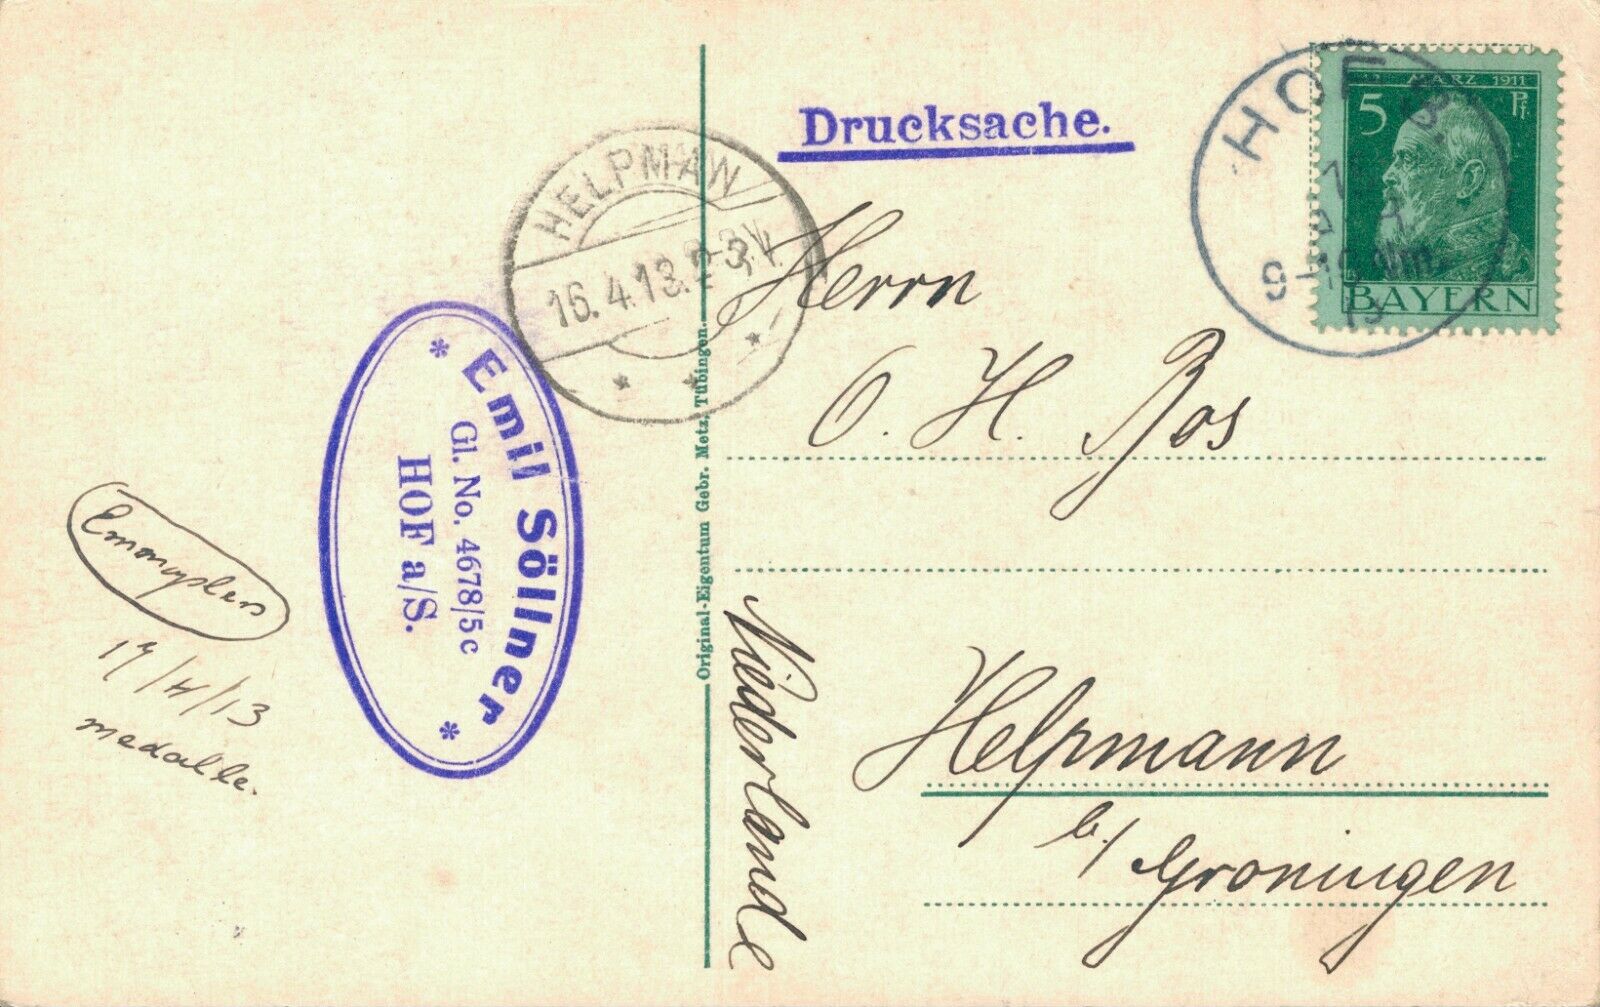 Drucksache.
HOF
9-10 Vm.
MÄRZ 1911
5 Pf.
BAYERN
HELPMAN
16.4.13. 2-3 V.
* * *
Herrn
O. H. Bos
Helpmann
b/ Groningen
Niederlande
* Emil Söllner *
Gl. No. 4678/5c
HOF a/S.
17/4/13
medalle.
Original-Eigentum Gebr. Metz, Tübingen.